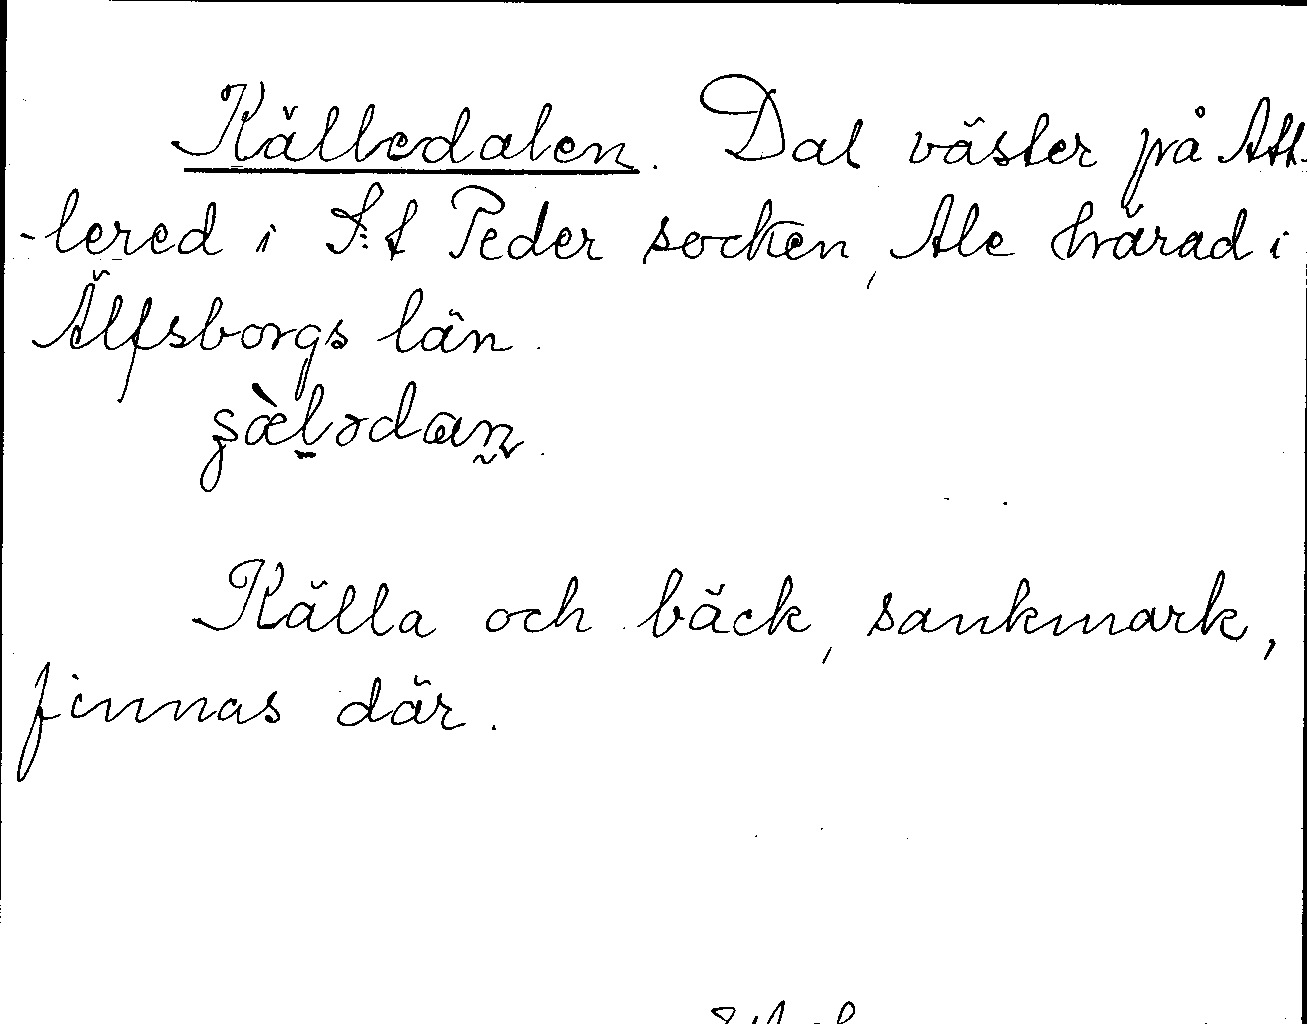 Källedalen. Dal väster på Att-
-lered i S:t Peder socken, Ale härad i
Älfsborgs län.
Källa och bäck, sankmark,
finnas där.